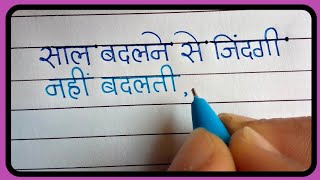 साल बदलने से जिंदगी
नहीं बदलती,